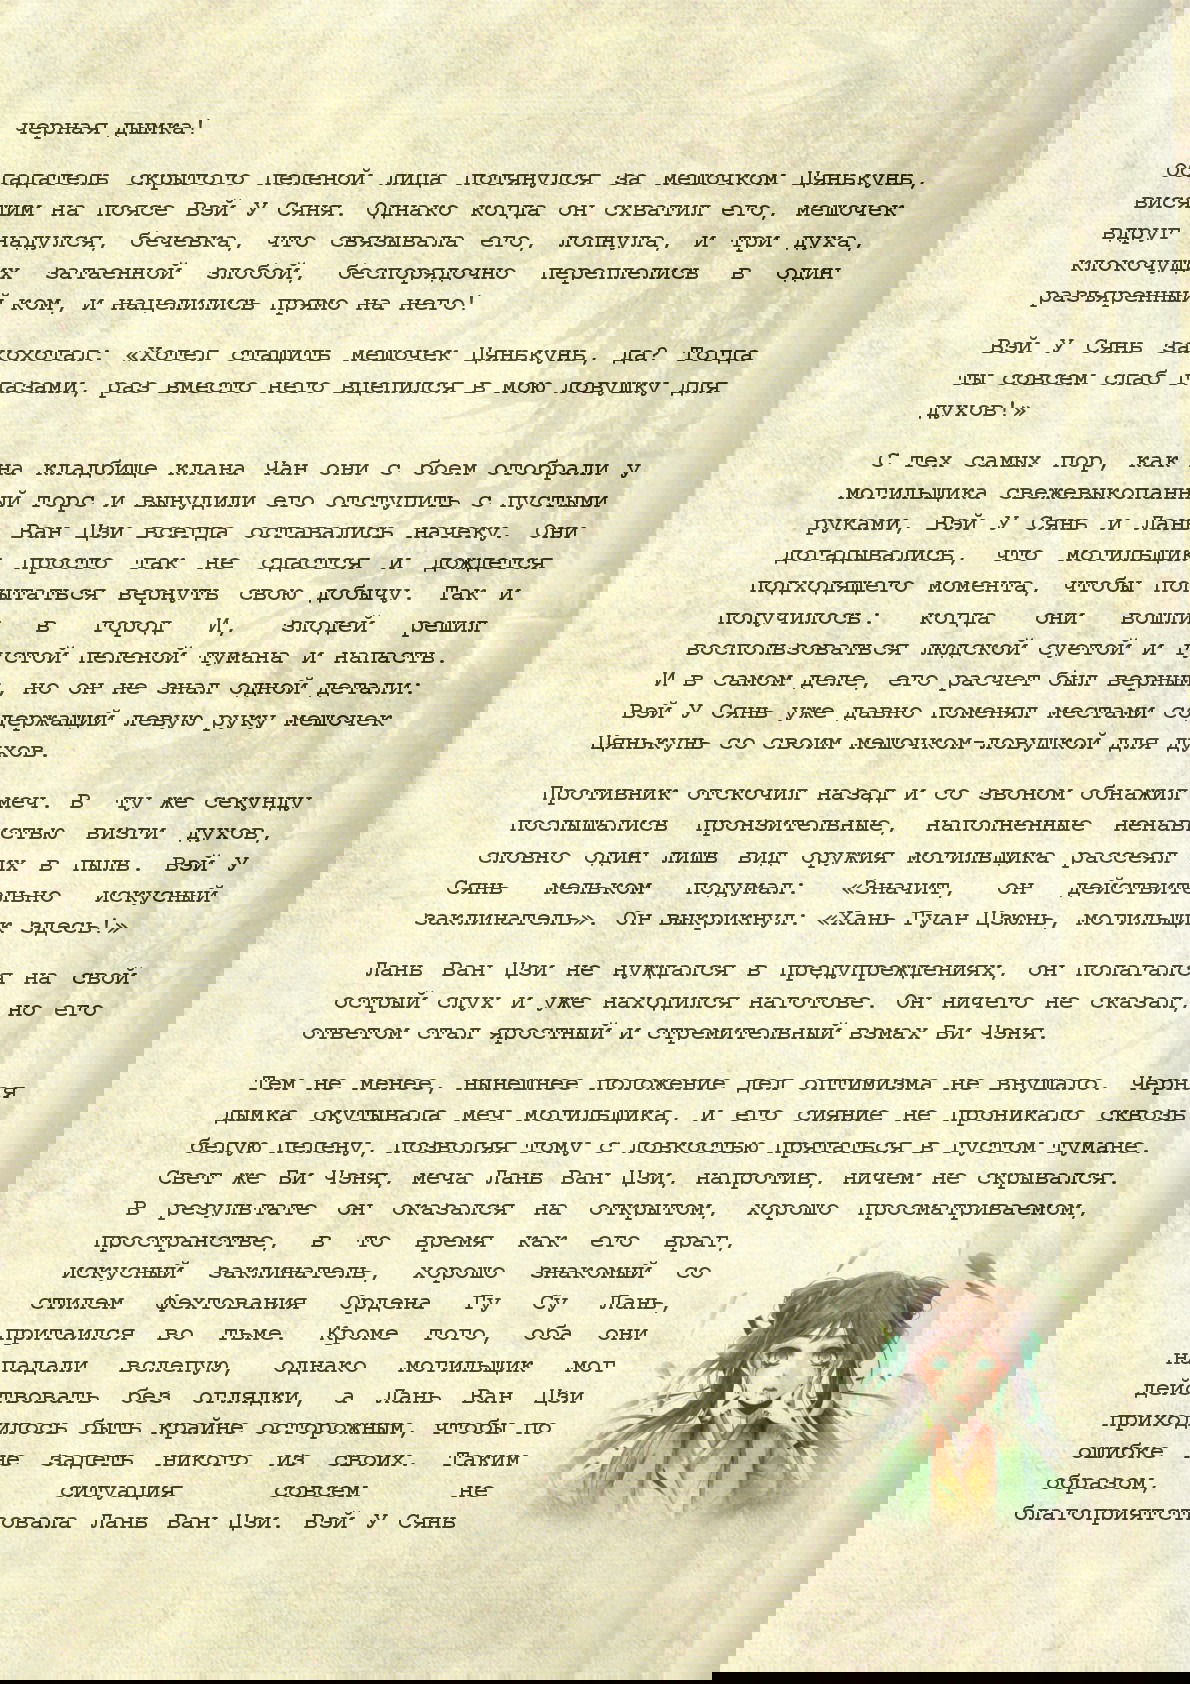 черная дымка!
Обладатель скрытого пеленой лица потянулся за мешочком Цянькунь,
висящим на поясе Вэй У Сяня. Однако когда он схватил его, мешочек
вдруг надулся, бечевка, что связывала его, лопнула, и три духа,
клокочущих затаенной злобой, беспорядочно переплелись в один
разъяренный ком, и нацелились прямо на него!
Вэй У Сянь захохотал: «Хотел стащить мешочек Цянькунь, да? Тогда
ты совсем слаб глазами, раз вместо него вцепился в мою ловушку для
духов!»
С тех самых пор, как на кладбище клана Чан они с боем отобрали у
могильщика свежевыкопанный торс и вынудили его отступить с пустыми
руками, Вэй У Сянь и Лань Ван Цзи всегда оставались начеку. Они
догадывались, что могильщик просто так не сдастся и дождется
подходящего момента, чтобы попытаться вернуть свою добычу. Так и
получилось: когда они вошли в город И, злодей решил
воспользоваться людской суетой и густой пеленой тумана и напасть.
И в самом деле, его расчет был верным, но он не знал одной детали:
Вэй У Сянь уже давно поменял местами содержащий левую руку мешочек
Цянькунь со своим мешочком-ловушкой для духов.
Противник отскочил назад и со звоном обнажил меч. В ту же секунду
послышались пронзительные, наполненные ненавистью визги духов,
словно один лишь вид оружия могильщика рассеял их в пыль. Вэй У
Сянь мельком подумал: «Значит, он действительно искусный
заклинатель». Он выкрикнул: «Хань Гуан Цзюнь, могильщик здесь!»
Лань Ван Цзи не нуждался в предупреждениях, он полагался на свой
острый слух и уже находился наготове. Он ничего не сказал, но его
ответом стал яростный и стремительный взмах Би Чэня.
Тем не менее, нынешнее положение дел оптимизма не внушало. Черная
дымка окутывала меч могильщика, и его сияние не проникало сквозь
белую пелену, позволяя тому с ловкостью прятаться в густом тумане.
Свет же Би Чэня, меча Лань Ван Цзи, напротив, ничем не скрывался.
В результате он оказался на открытом, хорошо просматриваемом,
пространстве, в то время как его враг,
искусный заклинатель, хорошо знакомый со
стилем фехтования Ордена Гу Су Лань,
притаился во тьме. Кроме того, оба они
нападали вслепую, однако могильщик мог
действовать без оглядки, а Лань Ван Цзи
приходилось быть крайне осторожным, чтобы по
ошибке не задеть никого из своих. Таким
образом, ситуация совсем не
благоприятствовала Лань Ван Цзи. Вэй У Сянь